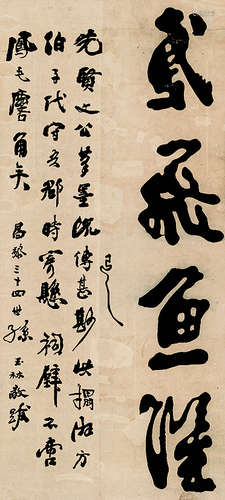 鳶飛魚躍
退之
先賢文公草墨流傳甚尠此搨方
伯子代守吾郡時寄懸祠不啻
鳳毛麐角矣
昌黎三十四世孫玉林敬跋